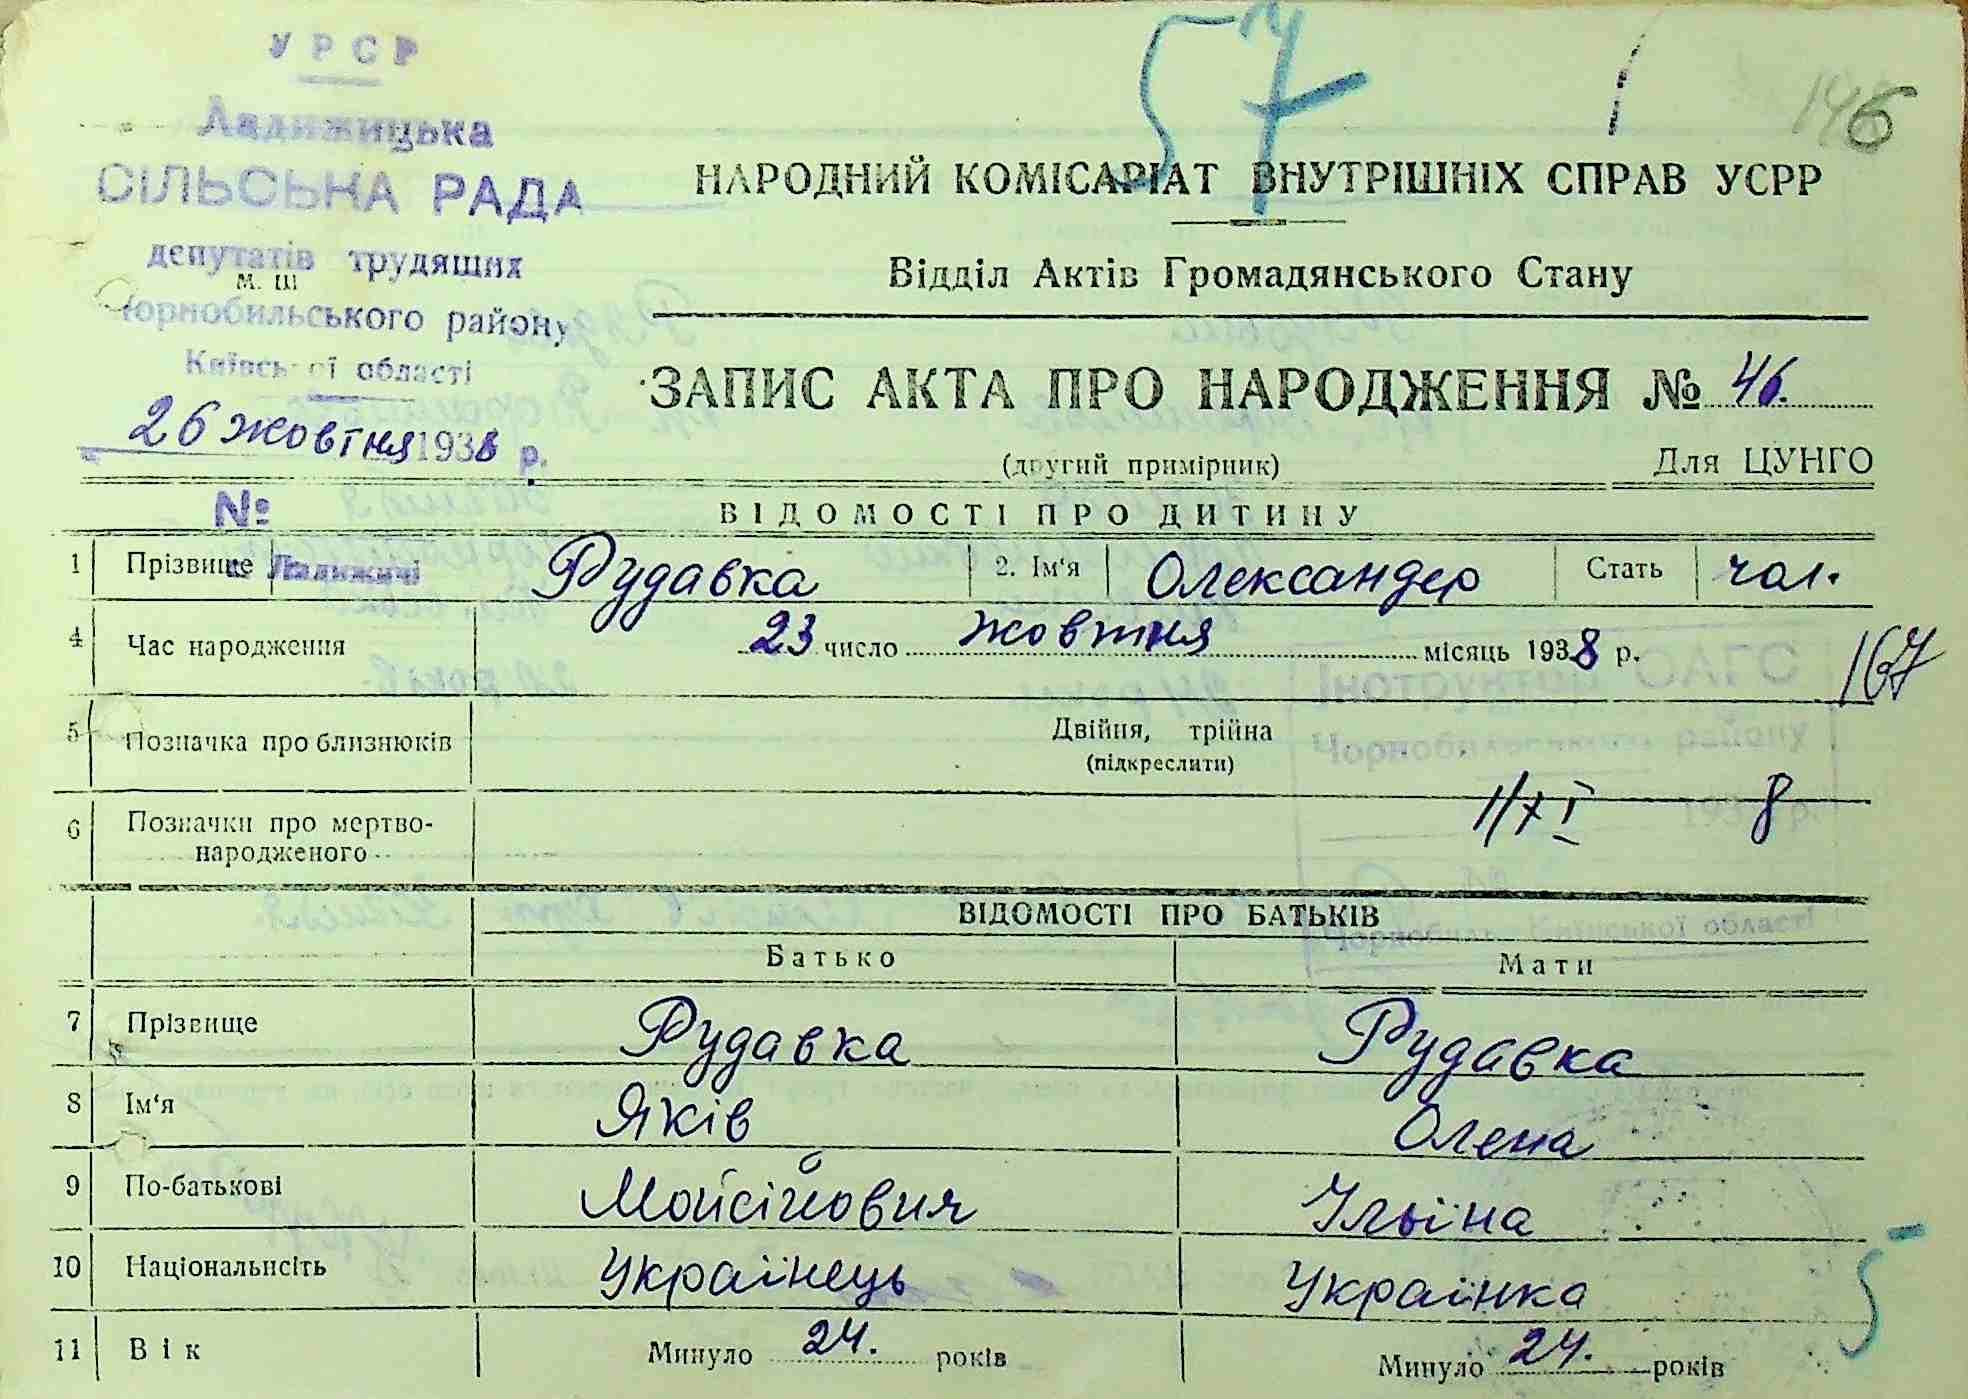 УРСР
Ладижицька
СІЛЬСЬКА РАДА
депутатів трудящих
М. Ш
Чорнобильського району
Київської області
26 жовтня 1938 р.
№
с. Ладижичі
57
146
НАРОДНИЙ КОМІСАРІАТ ВНУТРІШНІХ СПРАВ УСРР
Відділ Актів Громадянського Стану
ЗАПИС АКТА ПРО НАРОДЖЕННЯ № 46.
(другий примірник) Для ЦУНГО
ВІДОМОСТІ ПРО ДИТИНУ
1 Прізвище Рудавка 2. Ім'я Олександер Стать чол.
4 Час народження 23 число жовтня місяць 1938 р.
167
5 Позначка про близнюків Двійня, трійня
(підкреслити)
6 Позначки про мертво-
народженого
1/XI 8
ВІДОМОСТІ ПРО БАТЬКІВ
Батько Мати
7 Прізвище Рудавка Рудавка
8 Ім'я Яків Олена
9 По-батькові Мойсійович Ільїна
10 Національність Українець Українка
5
11 Вік Минуло 24. років Минуло 24. років